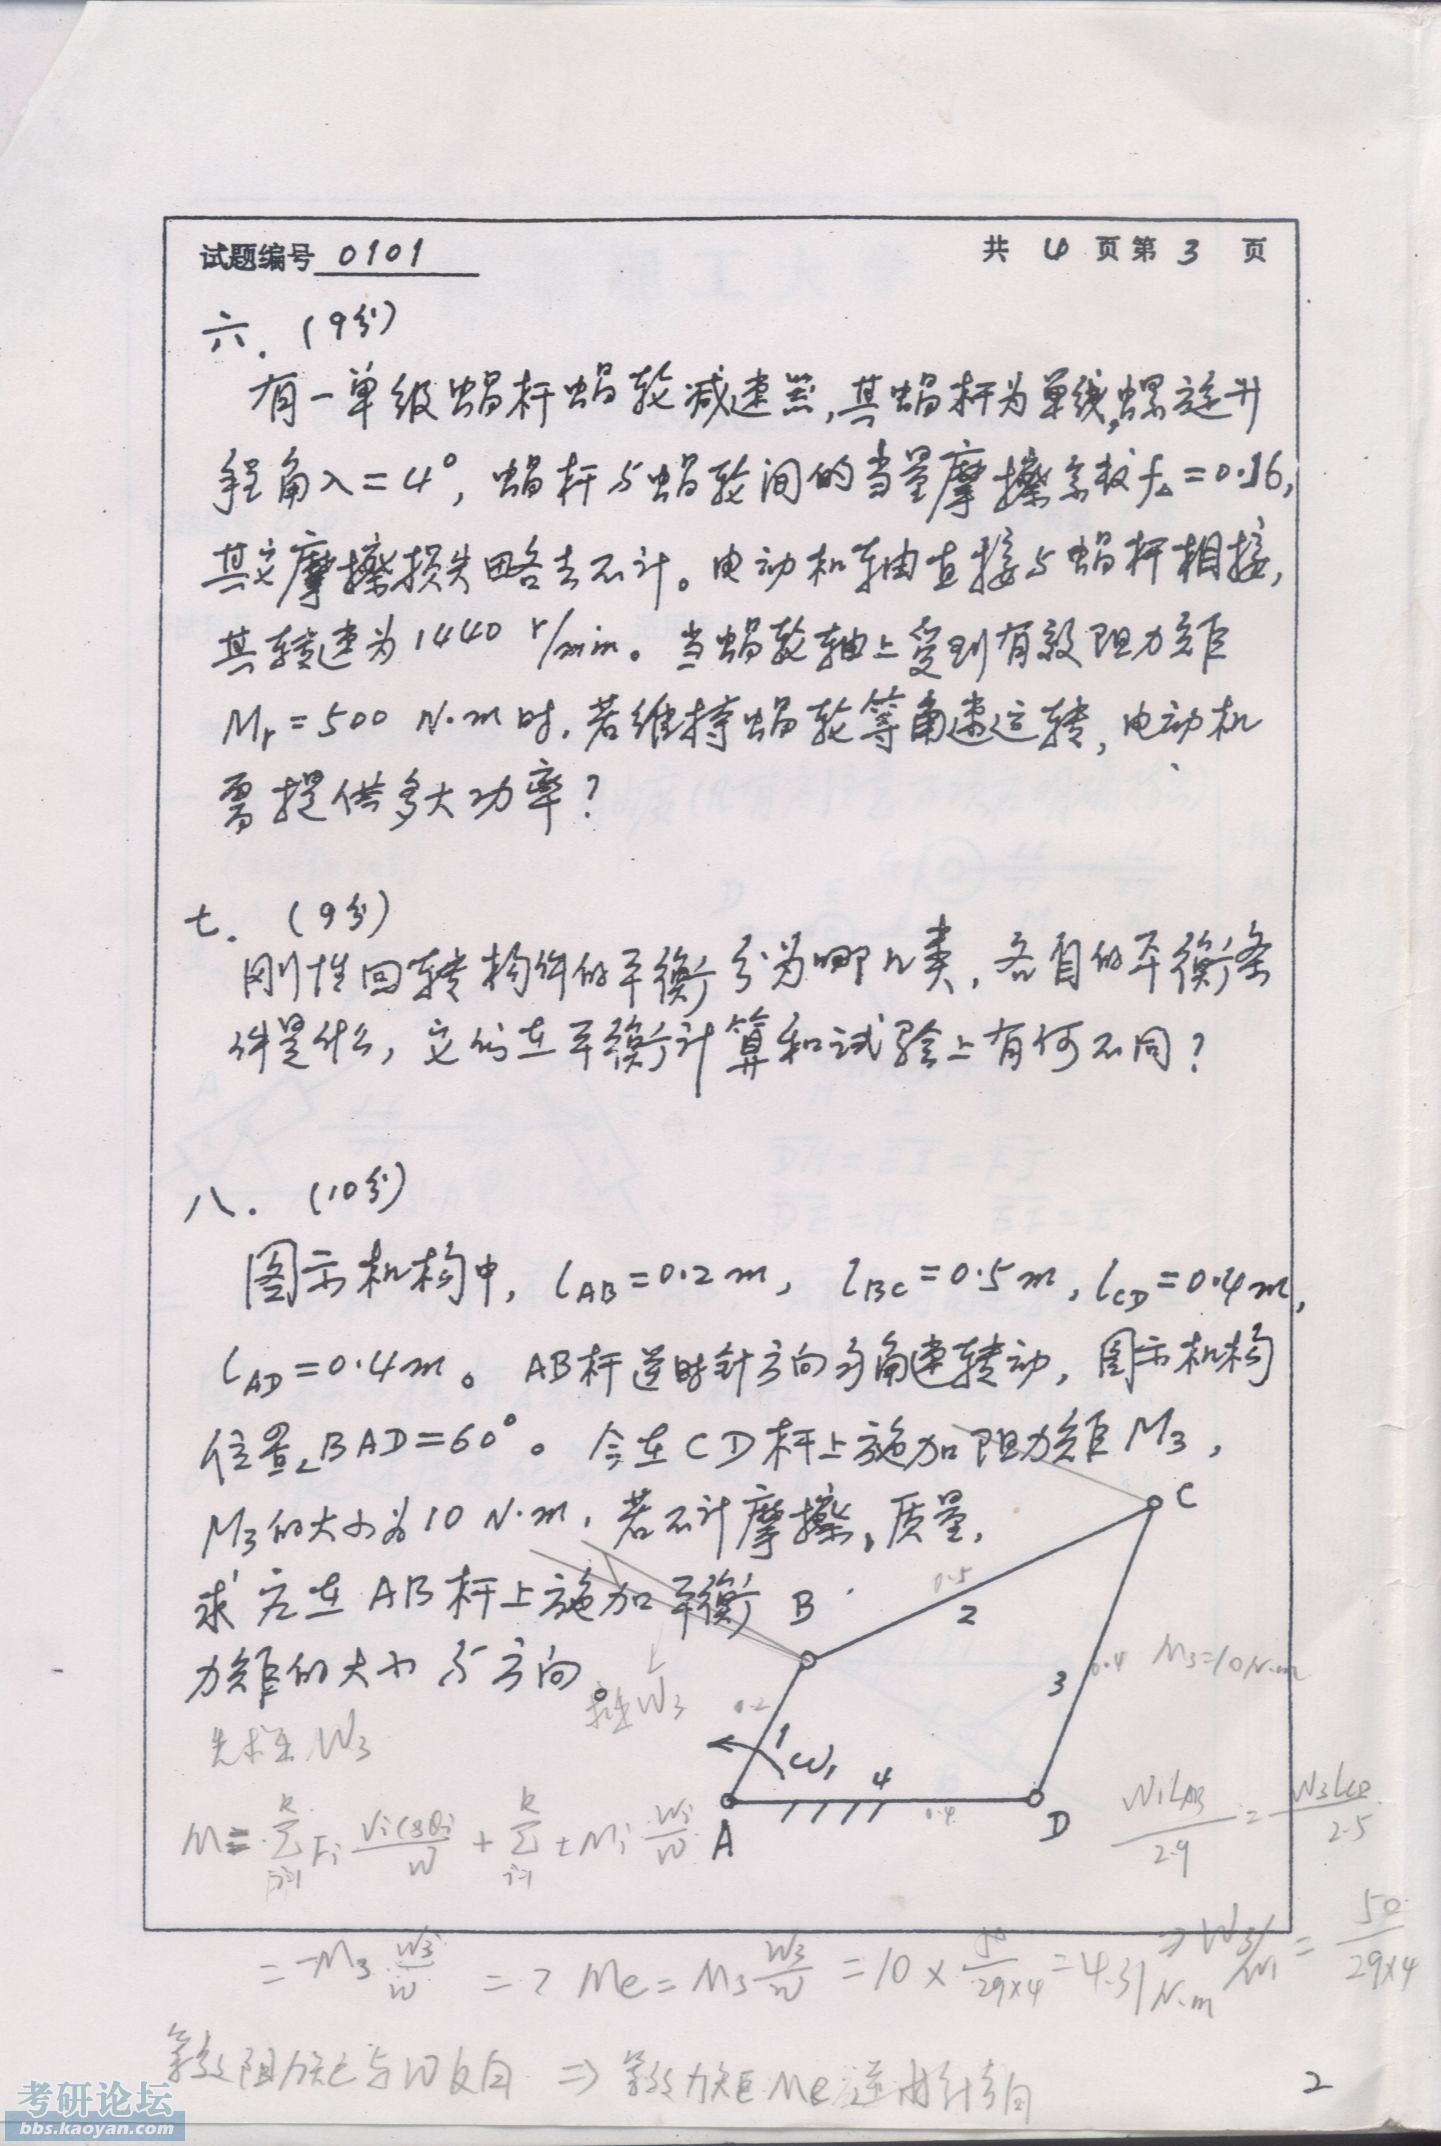 试题编号 0101
共 4 页 第 3 页
六. (9分)
有一单级蜗杆蜗轮减速器,其蜗杆为单线,螺旋升
程角λ=4°,蜗杆与蜗轮间的当量摩擦系数f△=0.16,
其它摩擦损失略去不计。电动机轴直接与蜗杆相接,
其转速为1440 r/min。当蜗轮轴上受到有效阻力矩
Mr=500 N·m时,若维持蜗轮等角速运转,电动机
需提供多大功率?
七. (9分)
刚性回转构件的平衡分为哪几类,各自的平衡条
件是什么,它们在平衡计算和试验上有何不同?
八. (10分)
图示机构中, lAB=0.2m, lBC=0.5m, lCD=0.4m,
lAD=0.4m。AB杆逆时针方向匀角速转动,图示机构
位置∠BAD=60°。今在CD杆上施加阻力矩M3,
M3的大小为10 N·m,若不计摩擦、质量,
求应在AB杆上施加平衡
力矩的大小与方向。
先求出W3
求出W3
B
C
2
0.5
3
0.4
M3=10N·m
0.2
1
ω1
4
0.4
A
D
W1LAB/2.9 = W3LCD/2.5
M= Σ Fi Vicosθi/W + Σ ±Mi Wi/W
= -M3 W3/W => Me = M3 W3/W = 10 × 50/29×4 = 4.31 N·m
=> W3/W1 = 50/29×4
等效阻力矩与W反向 => 等效力矩Me逆时针方向
2
考研论坛
bbs.kaoyan.com